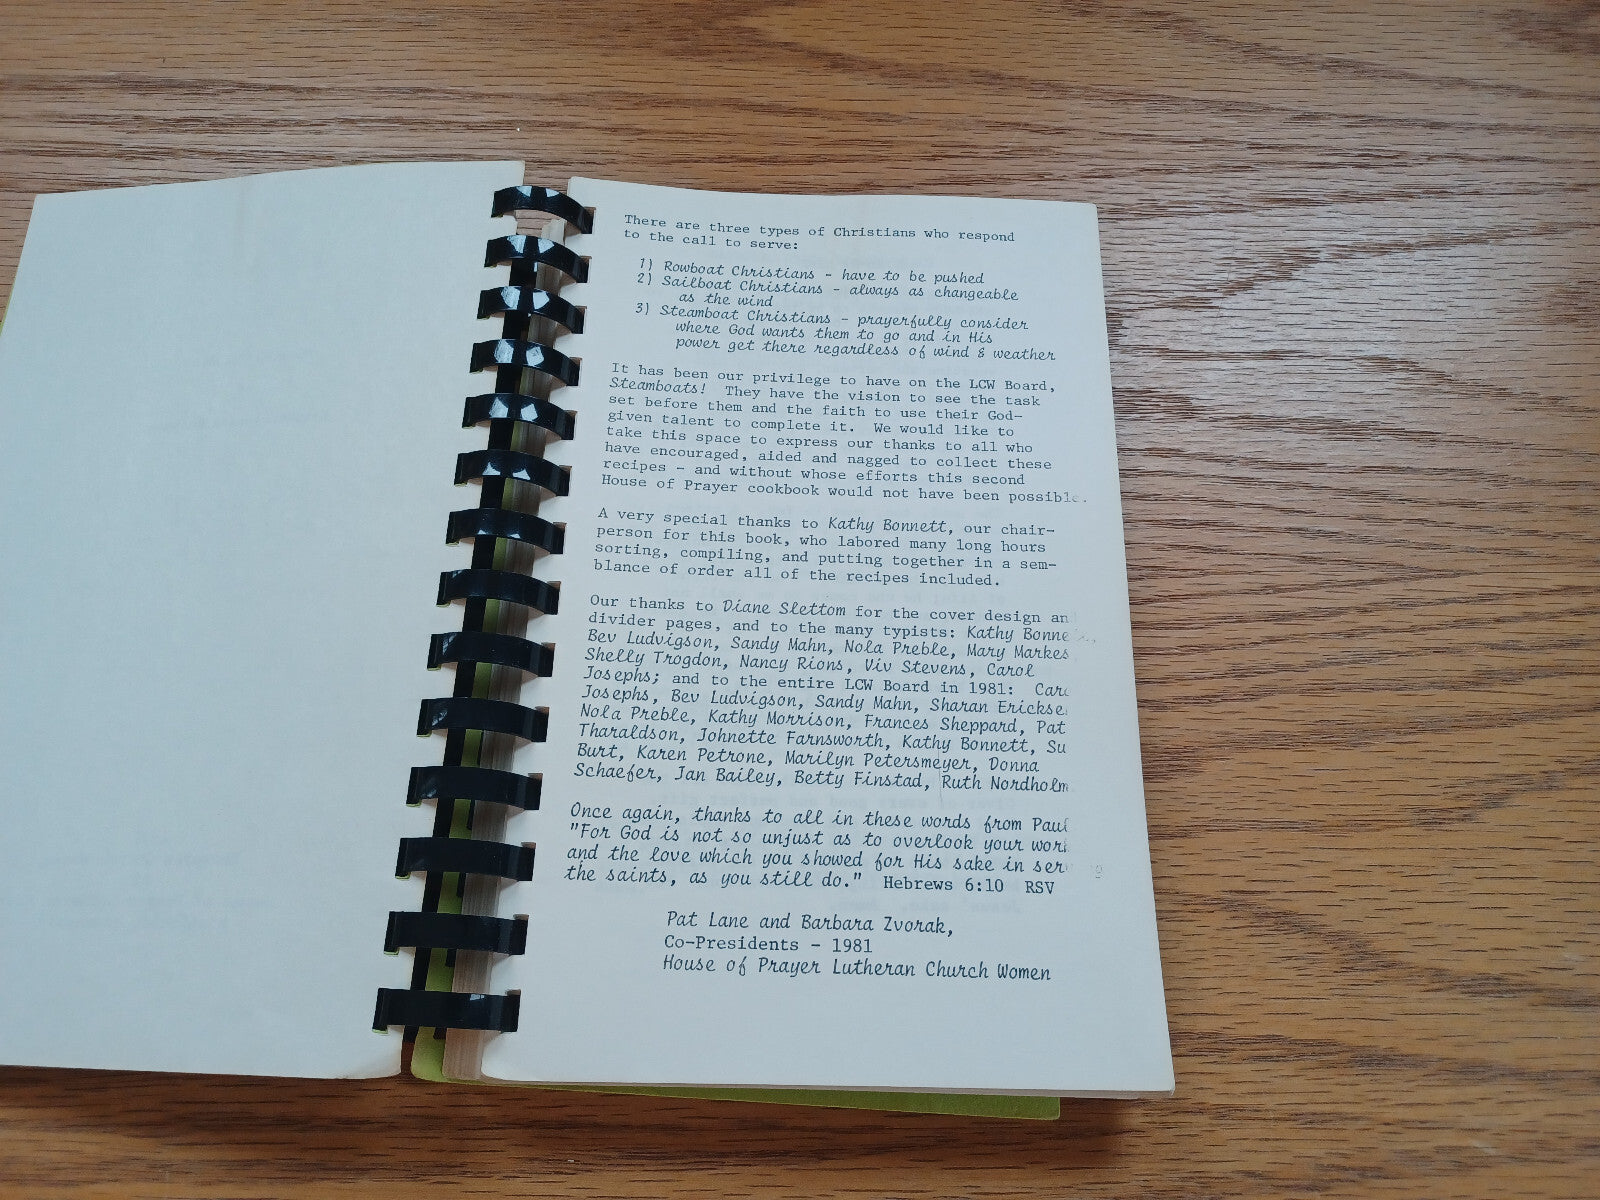 There are three types of Christians who respond
to the call to serve:
1) Rowboat Christians - have to be pushed
2) Sailboat Christians - always as changeable
as the wind
3) Steamboat Christians - prayerfully consider
where God wants them to go and in His
power get there regardless of wind & weather
It has been our privilege to have on the LCW Board,
Steamboats! They have the vision to see the task
set before them and the faith to use their God-
given talent to complete it. We would like to
take this space to express our thanks to all who
have encouraged, aided and nagged to collect these
recipes - and without whose efforts this second
House of Prayer cookbook would not have been possible.
A very special thanks to Kathy Bonnett, our chair-
person for this book, who labored many long hours
sorting, compiling, and putting together in a sem-
blance of order all of the recipes included.
Our thanks to Diane Slettom for the cover design an
divider pages, and to the many typists: Kathy Bonne
Bev Ludvigson, Sandy Mahn, Nola Preble, Mary Markes
Shelly Trogdon, Nancy Rions, Viv Stevens, Carol
Josephs; and to the entire LCW Board in 1981: Caro
Josephs, Bev Ludvigson, Sandy Mahn, Sharan Erickse
Nola Preble, Kathy Morrison, Frances Sheppard, Pat
Tharaldson, Johnette Farnsworth, Kathy Bonnett, Su
Burt, Karen Petrone, Marilyn Petersmeyer, Donna
Schaefer, Jan Bailey, Betty Finstad, Ruth Nordholm
Once again, thanks to all in these words from Paul
"For God is not so unjust as to overlook your work
and the love which you showed for His sake in ser
the saints, as you still do." Hebrews 6:10 RSV
Pat Lane and Barbara Zvorak,
Co-Presidents - 1981
House of Prayer Lutheran Church Women